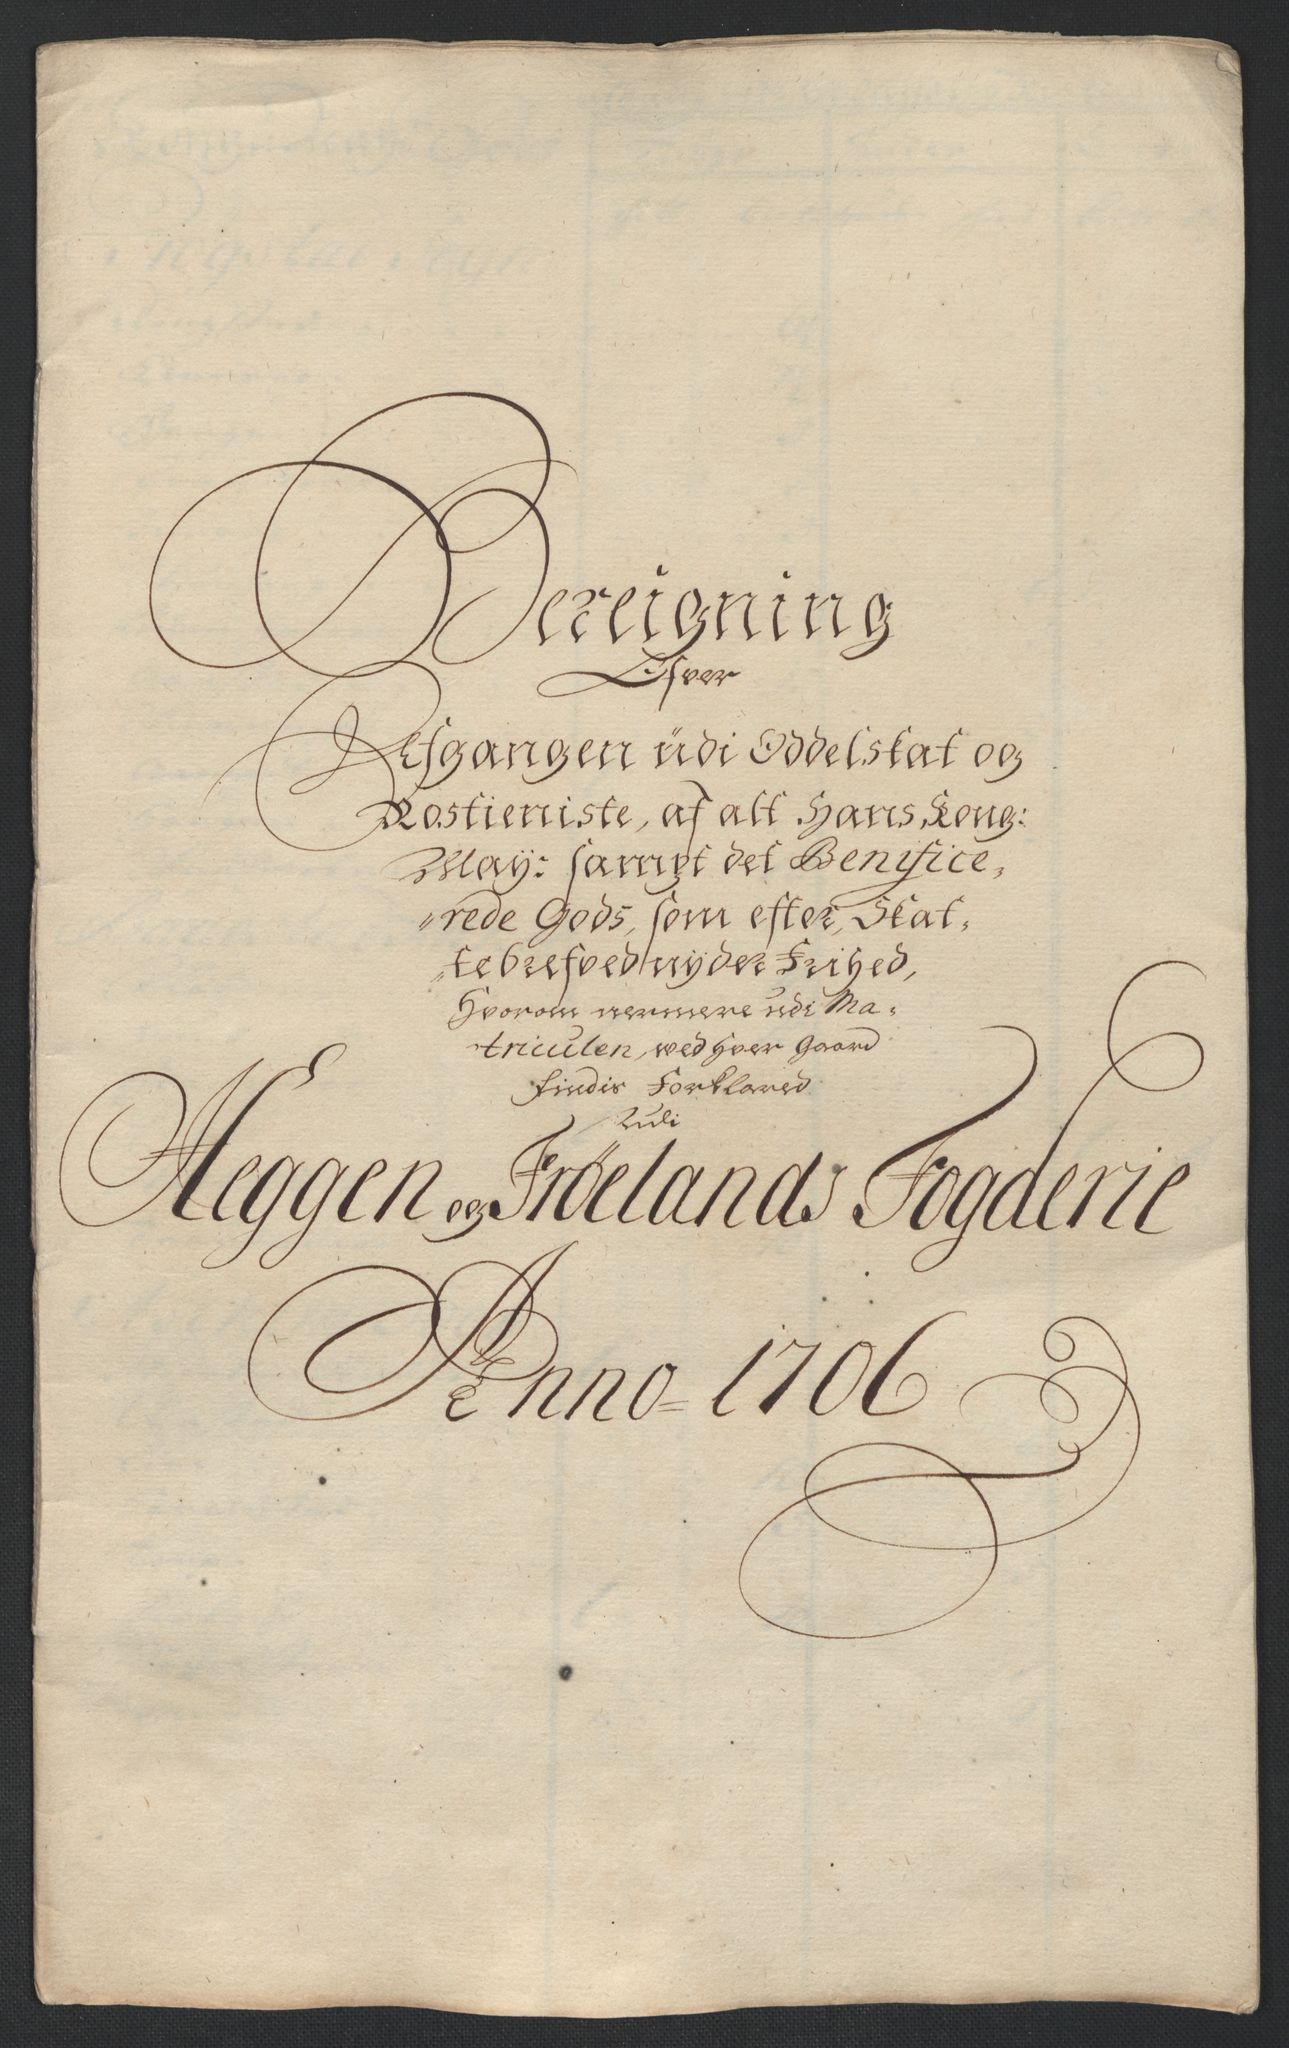 Bereigning
Ofver
Afgangen üdi Oddelskat og
Rostieniste, af alt Hans Kong:
May: sampt det Benifice,
"rede Gods, som efter Skat,
"tebrefved nyder Frihed,
Hvorom nermere udi Ma,
triculen, wed hver Gaard
findis Forklared
udi
Heggen og Frøelands Fogderie
Anno = 1706